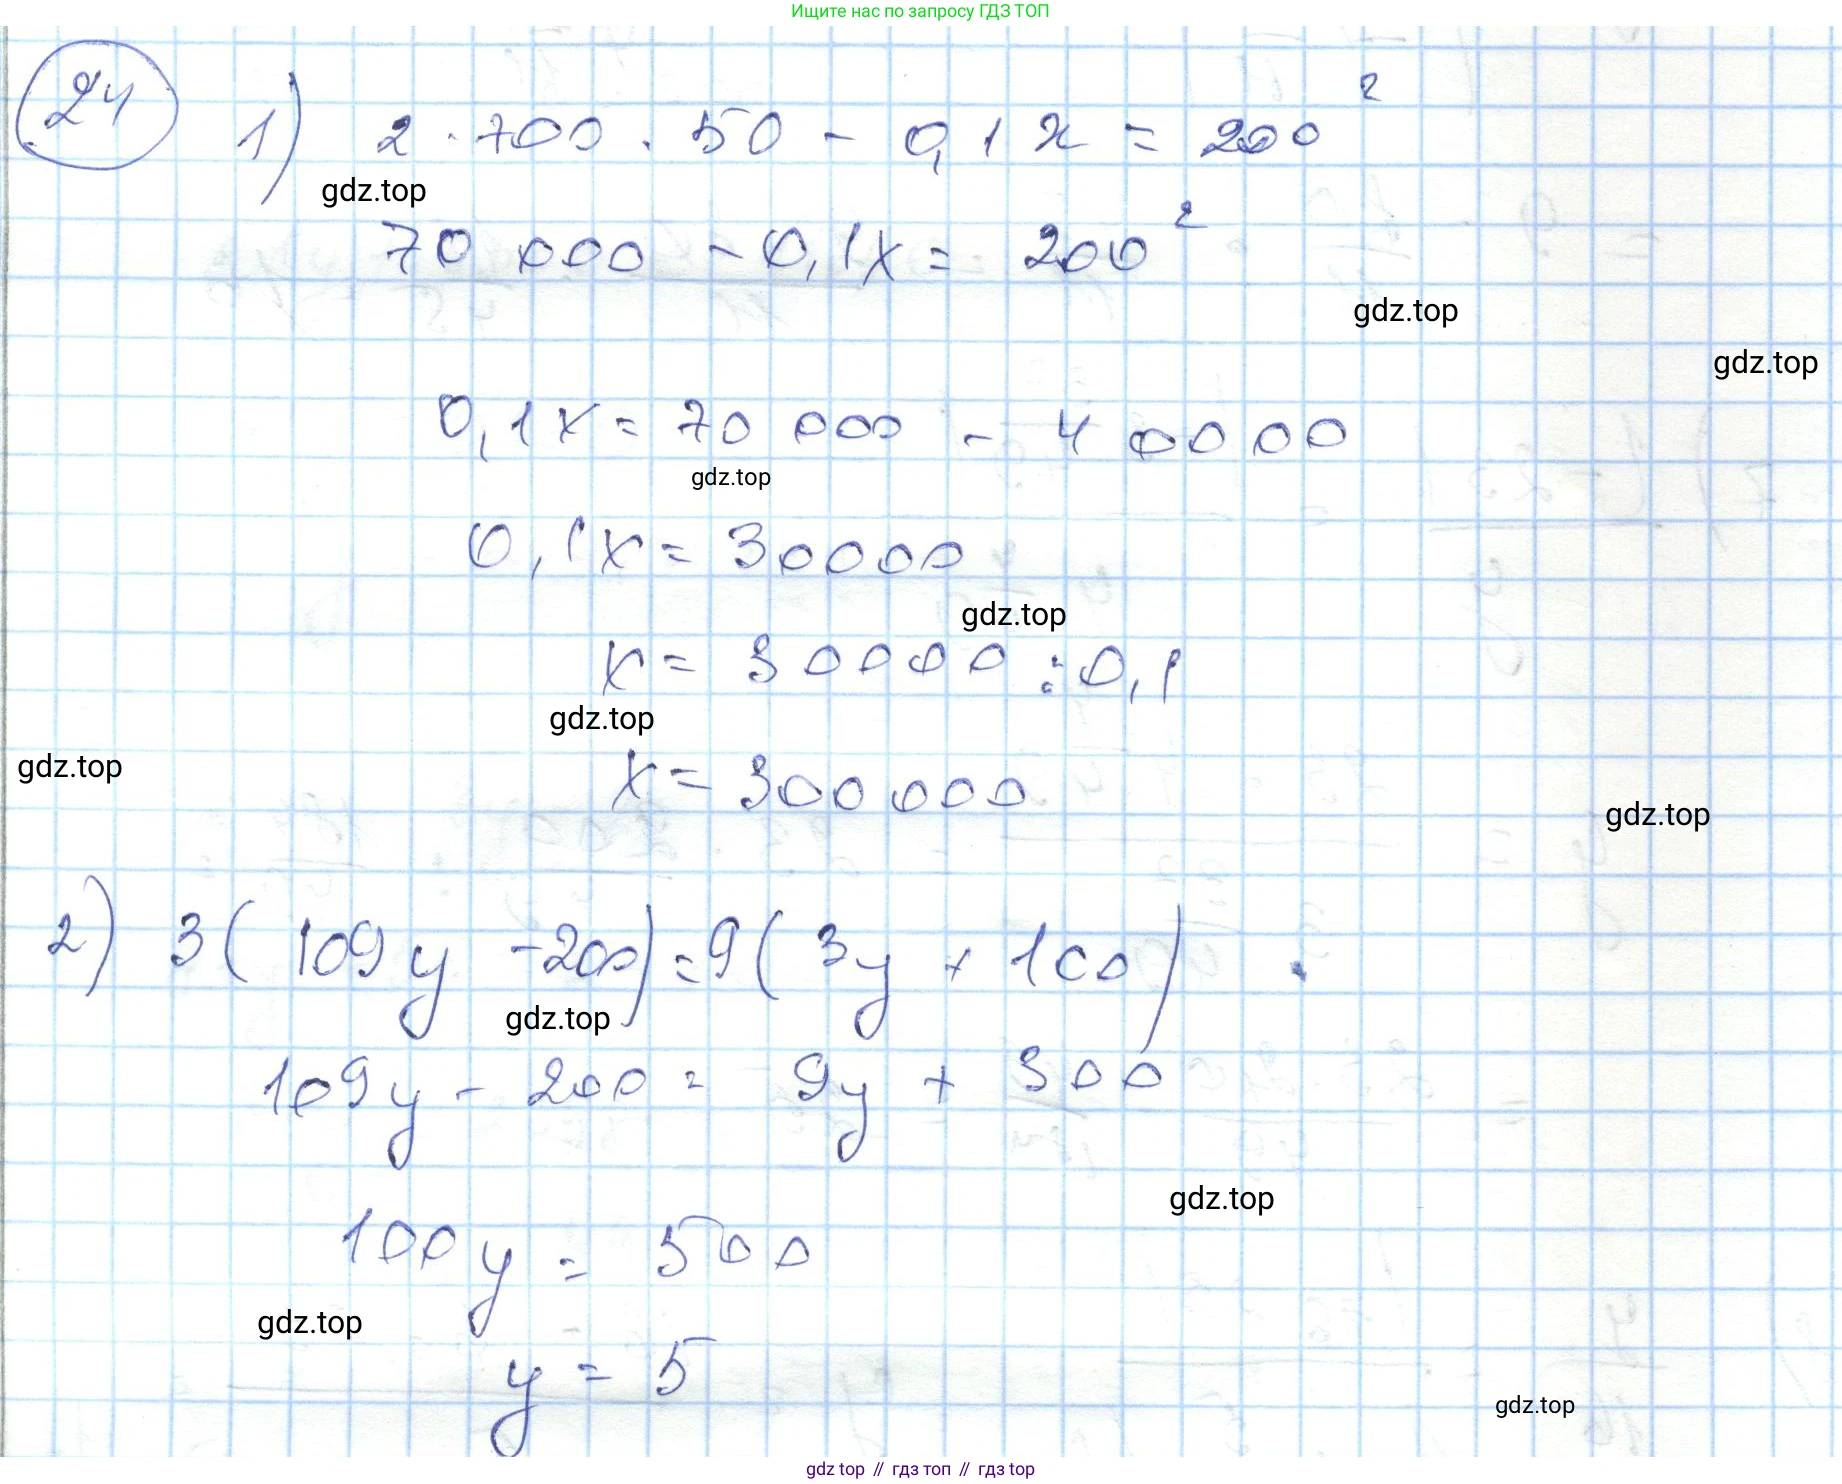 Ищите нас по запросу ГДЗ ТОП
24
1) 2 · 700 · 50 - 0,1x = 200²
gdz.top
70 000 - 0,1x = 200²
gdz.top
gdz.top
0,1x = 70 000 - 40000
gdz.top
0,1x = 30000
gdz.top
x = 30000 : 0,1
gdz.top
gdz.top
x = 300 000
gdz.top
2) 3(109y - 200) = 9(3y + 100)
gdz.top
109y - 200 = 9y + 300
gdz.top
100y = 500
gdz.top
y = 5
gdz.top
gdz top // гдз топ // гдз top